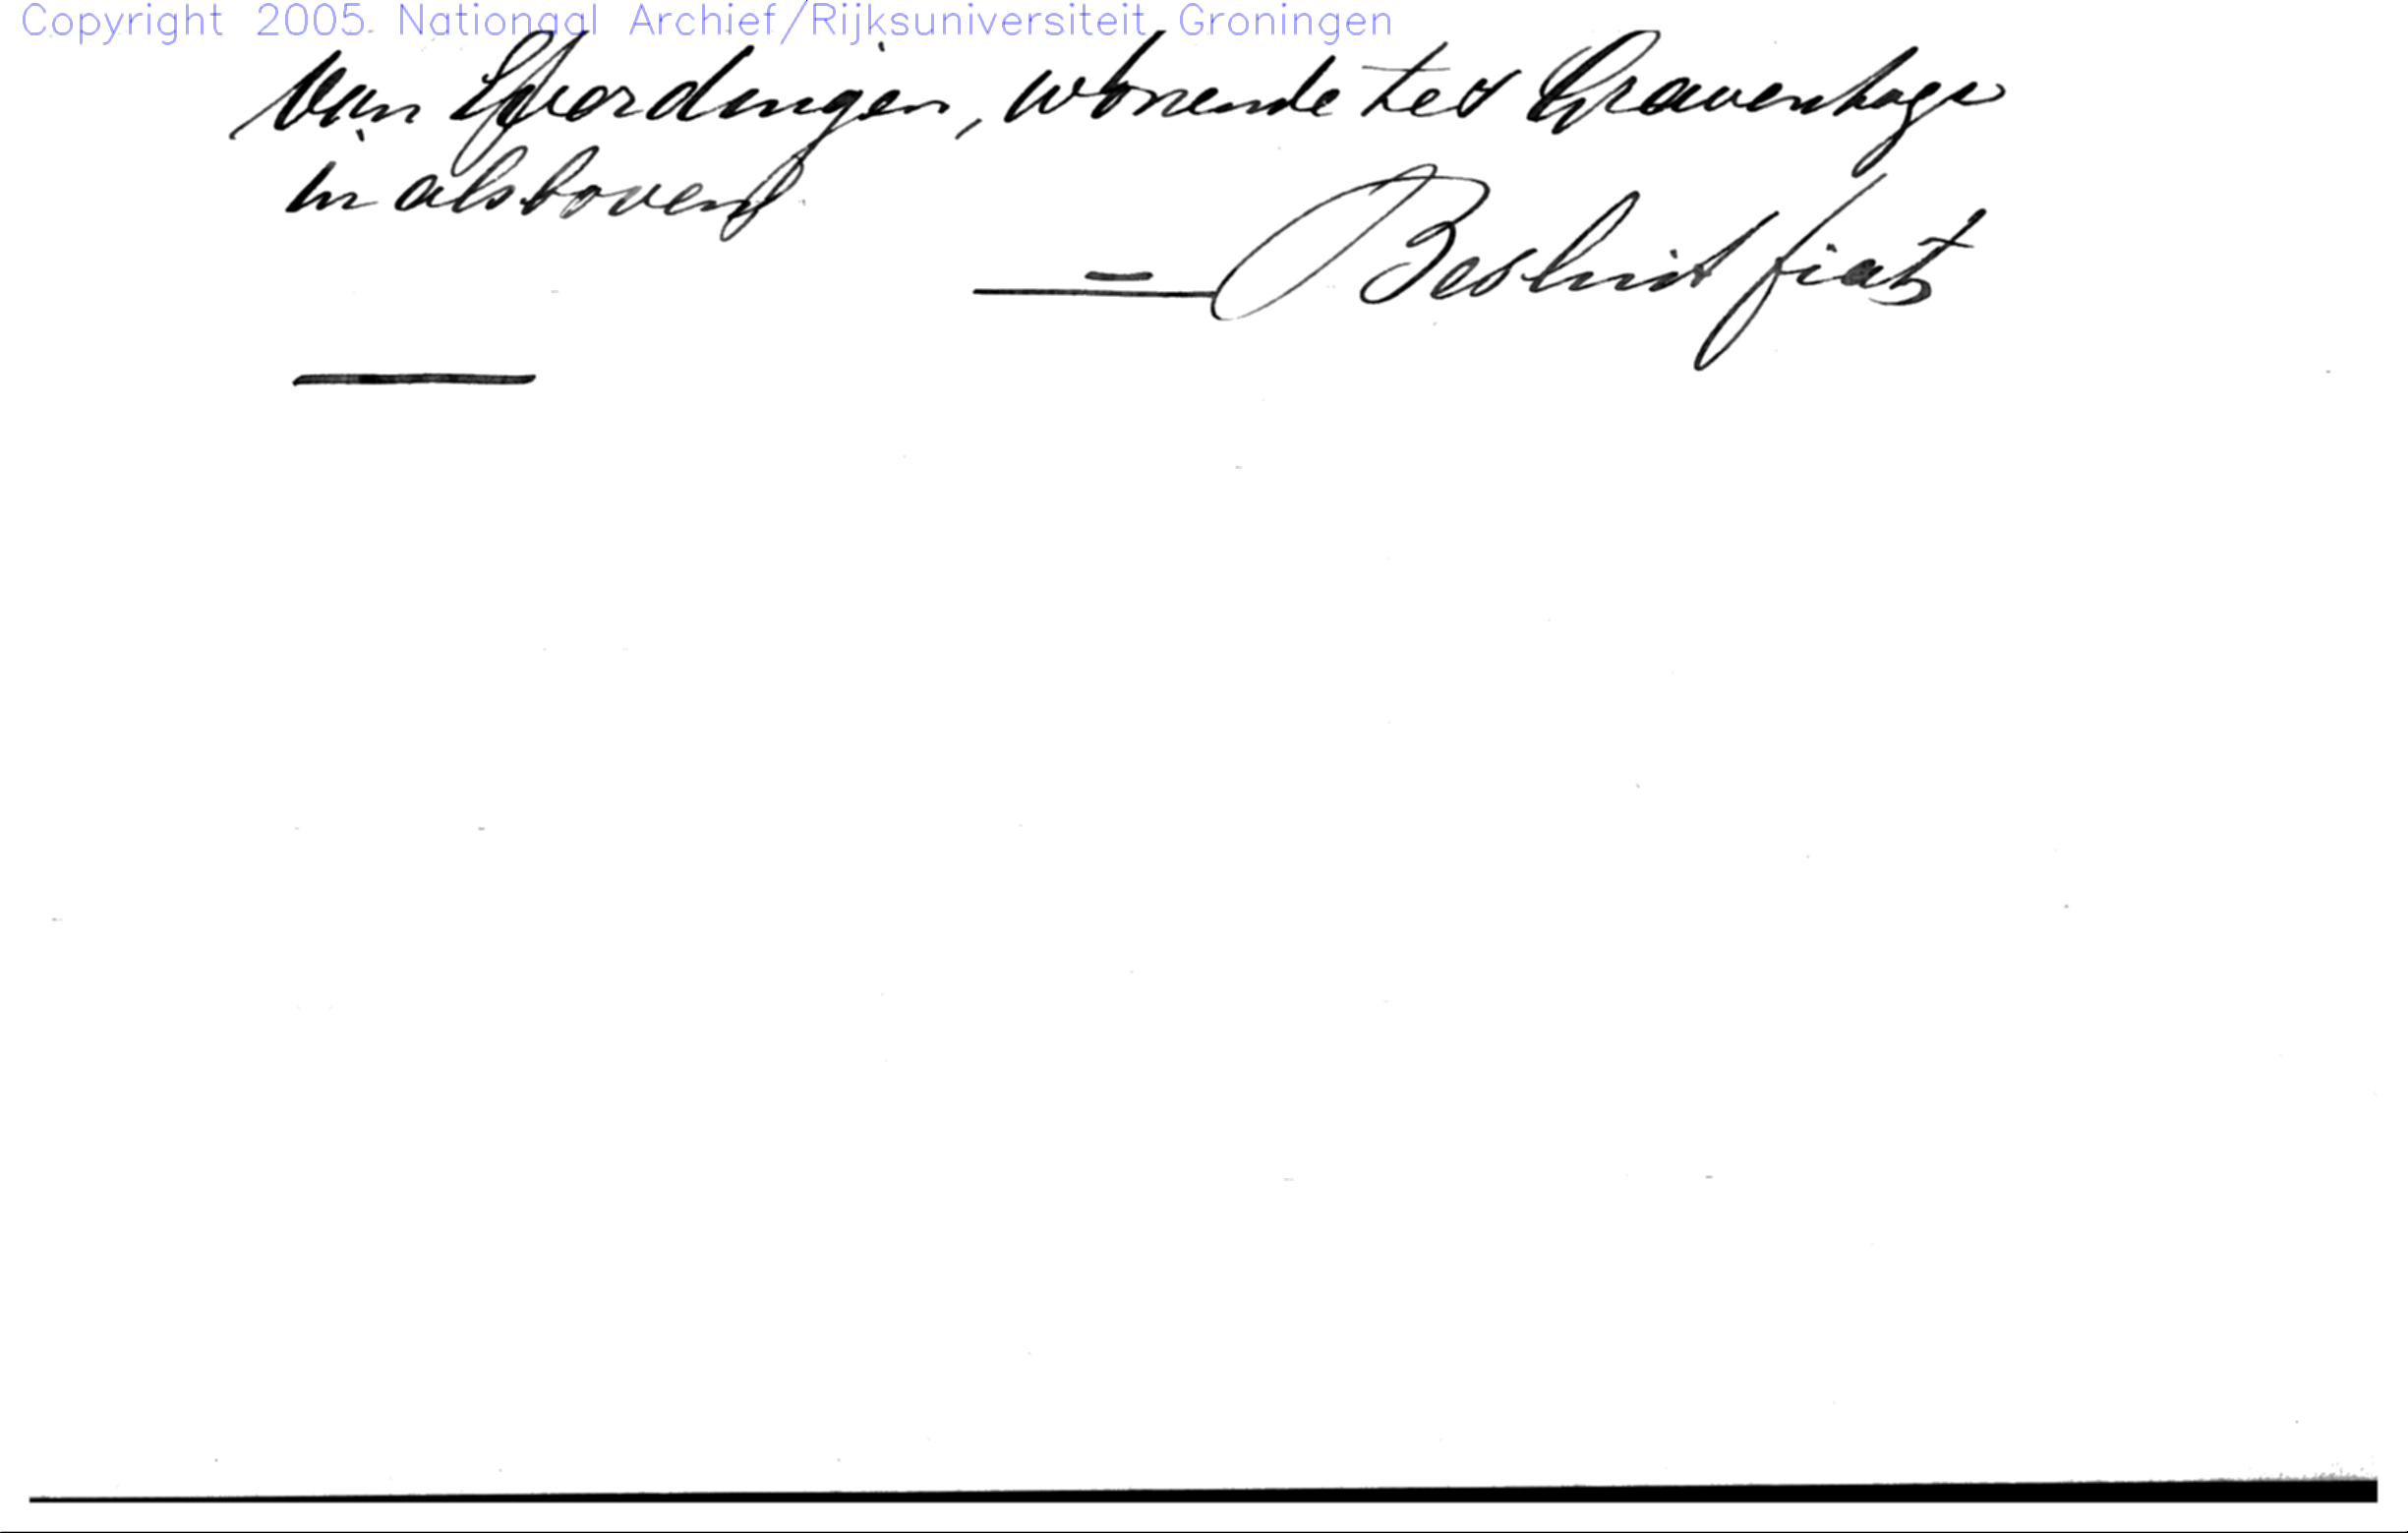 Copyright 2005 Nationaal Archief/Rijksuniversiteit Groningen
Van Everdingen, wonende te's Gravenhage
in als boven
Besluit fiat